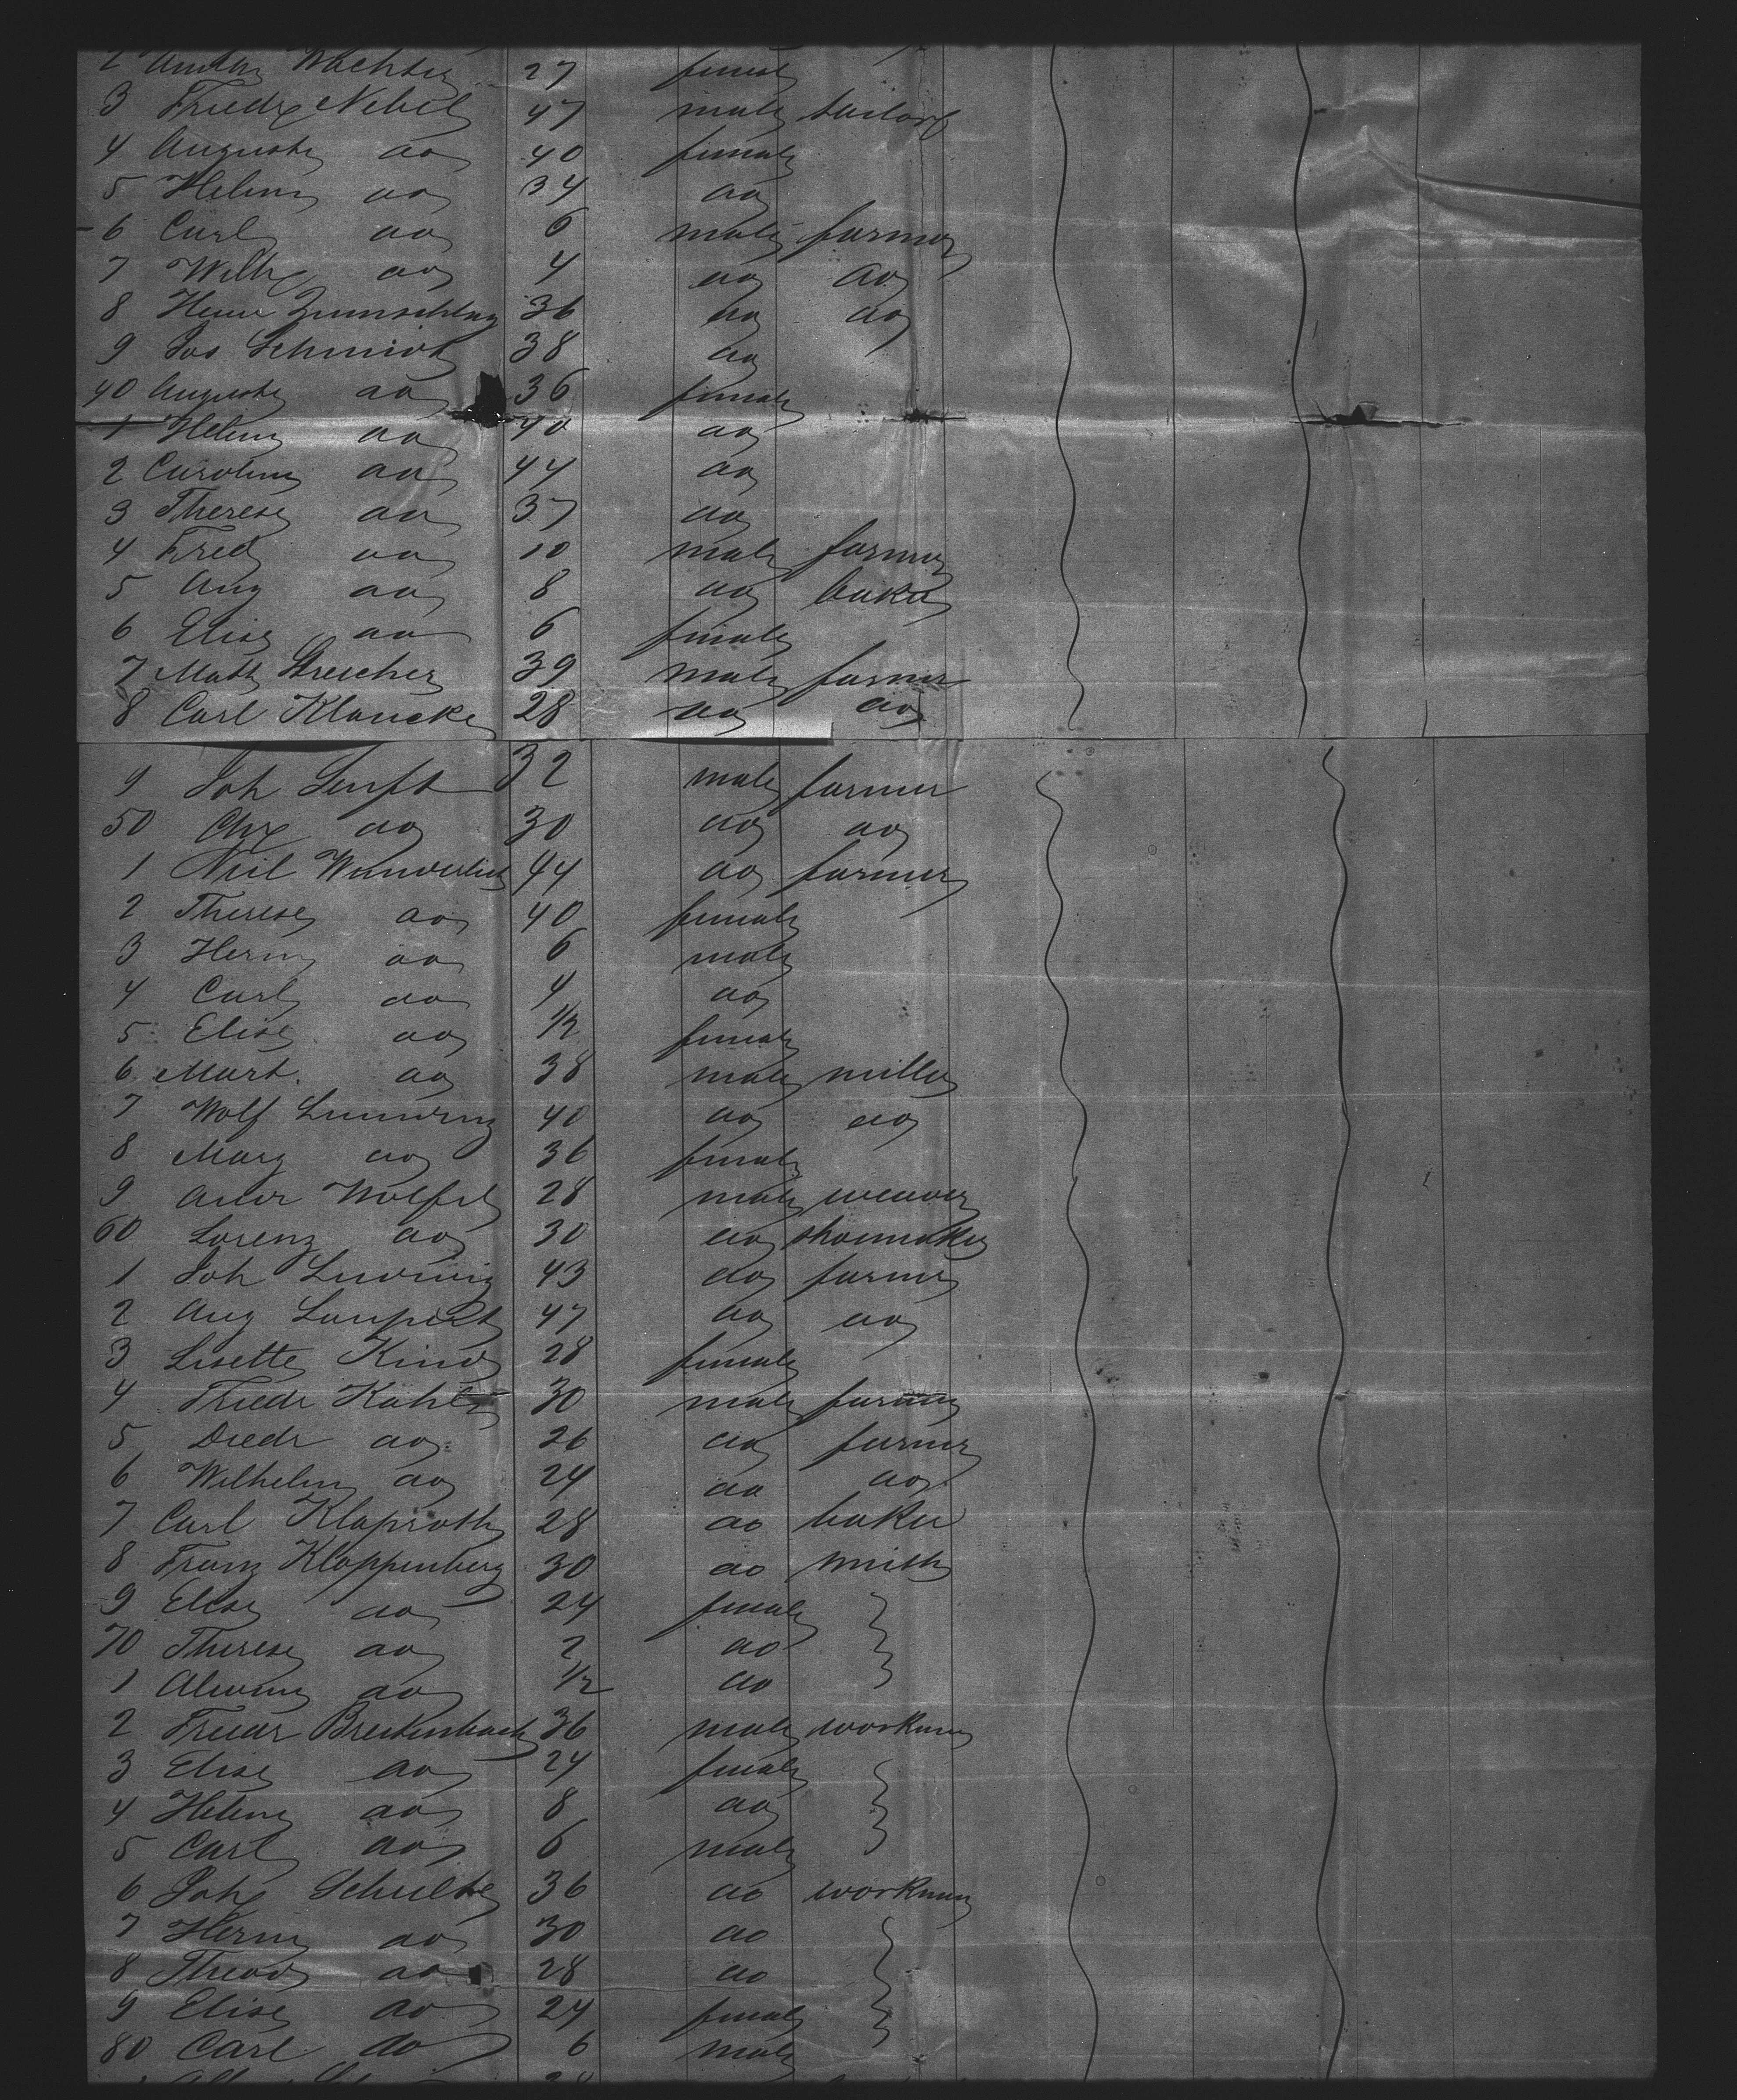 2 Wachter 27 female
3 Friedr Nebel 47 male tailor
4 Auguste do 40 female
5 Helene do 34 do
6 Carl do 6 male farmer
7 Wilh do 4 do do
8 Henr Zumschlag 36 do do
9 Jos Schmidt 38 do
40 Auguste do 36 female
1 Helene do 40 do
2 Caroline do 44 do
3 Therese do 37 do
4 Fred do 10 male farmer
5 Aug do 8 do baker
6 Elise do 6 female
7 Math Streicher 39 male farmer
8 Carl Klaucke 28 do do
9 Joh Senft 32 male farmer
50 Chr do 30 do do
1 Wunderlich 44 do farmer
2 Therese do 40 female
3 Herm do 6 male
4 Carl do 4 do
5 Elise do 1/2 female
6 Mart. do 38 male miller
7 Wolf 40 do do
8 Marg do 36 female
9 Andr Wolfel 28 male weaver
60 Lorenz do 30 do shoemaker
1 Joh Ludwig 43 do farmer
2 Aug Lampert 47 do do
3 Lisette Kind 28 female
4 Friedr Kohle 30 male farmer
5 Diedr do 26 do farmer
6 Wilhelm do 24 do do
7 Carl Klaproth 28 do baker
8 Franz Kloppenberg 30 do smith
9 Elise do 24 female
70 Therese do 2 do
1 Alwine do 1/2 do
2 Friedr Breitenbach 36 male workman
3 Elise do 24 female
4 Helene do 8 do
5 Carl do 6 male
6 Joh Schulte 36 do workman
7 Herm do 30 do
8 Theod do 28 do
9 Elise do 24 female
80 Carl do 6 male